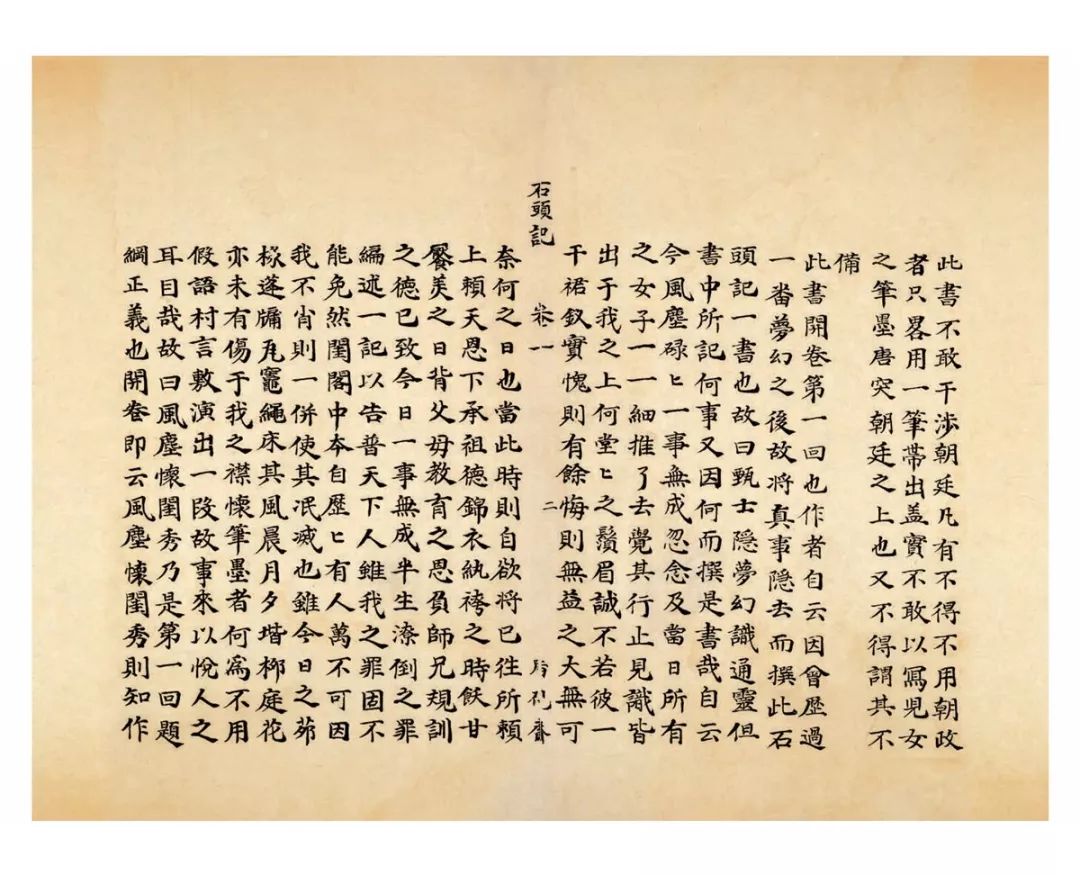 此書不敢干涉朝廷凢有不得不用朝政
者只畧用一筆帶出盖實不敢以寫児女
之筆墨唐突朝廷之上也又不得謂其不
備
此書開卷第一回也作者自云因曾歴過
一畨夢幻之後故将真事隠去而撰此石
頭記一書也故曰甄士隠夢幻識通靈但
書中所記何事又因何而撰是書哉自云
今風塵碌匕一事無成忽念及當日所有
之女子一一細推了去覺其行止見識皆
出于我之上何堂匕之鬚眉誠不若彼一
干裙釵實愧則有餘悔則無益之大無可
石頭記 卷一 二 脂硯齋
奈何之日也當此時則自欲将已徃所頼
上頼天恩下承祖德錦衣紈袴之時飫甘
饜美之日背父母教育之恩負師兄規訓
之德已致今日一事無成半生潦倒之罪
編述一記以告普天下人雖我之罪固不
能免然閨閣中夲自歴匕有人萬不可因
我不肖則一併使其泯滅也雖今日之茆
椽蓬牖瓦竈繩床其風晨月夕堦栁庭花
亦未有傷于我之襟懷筆墨者何為不用
假語村言敷演出一段故事來以悅人之
耳目哉故曰風塵懷閨秀乃是第一回題
綱正義也開卷即云風塵懷閨秀則知作